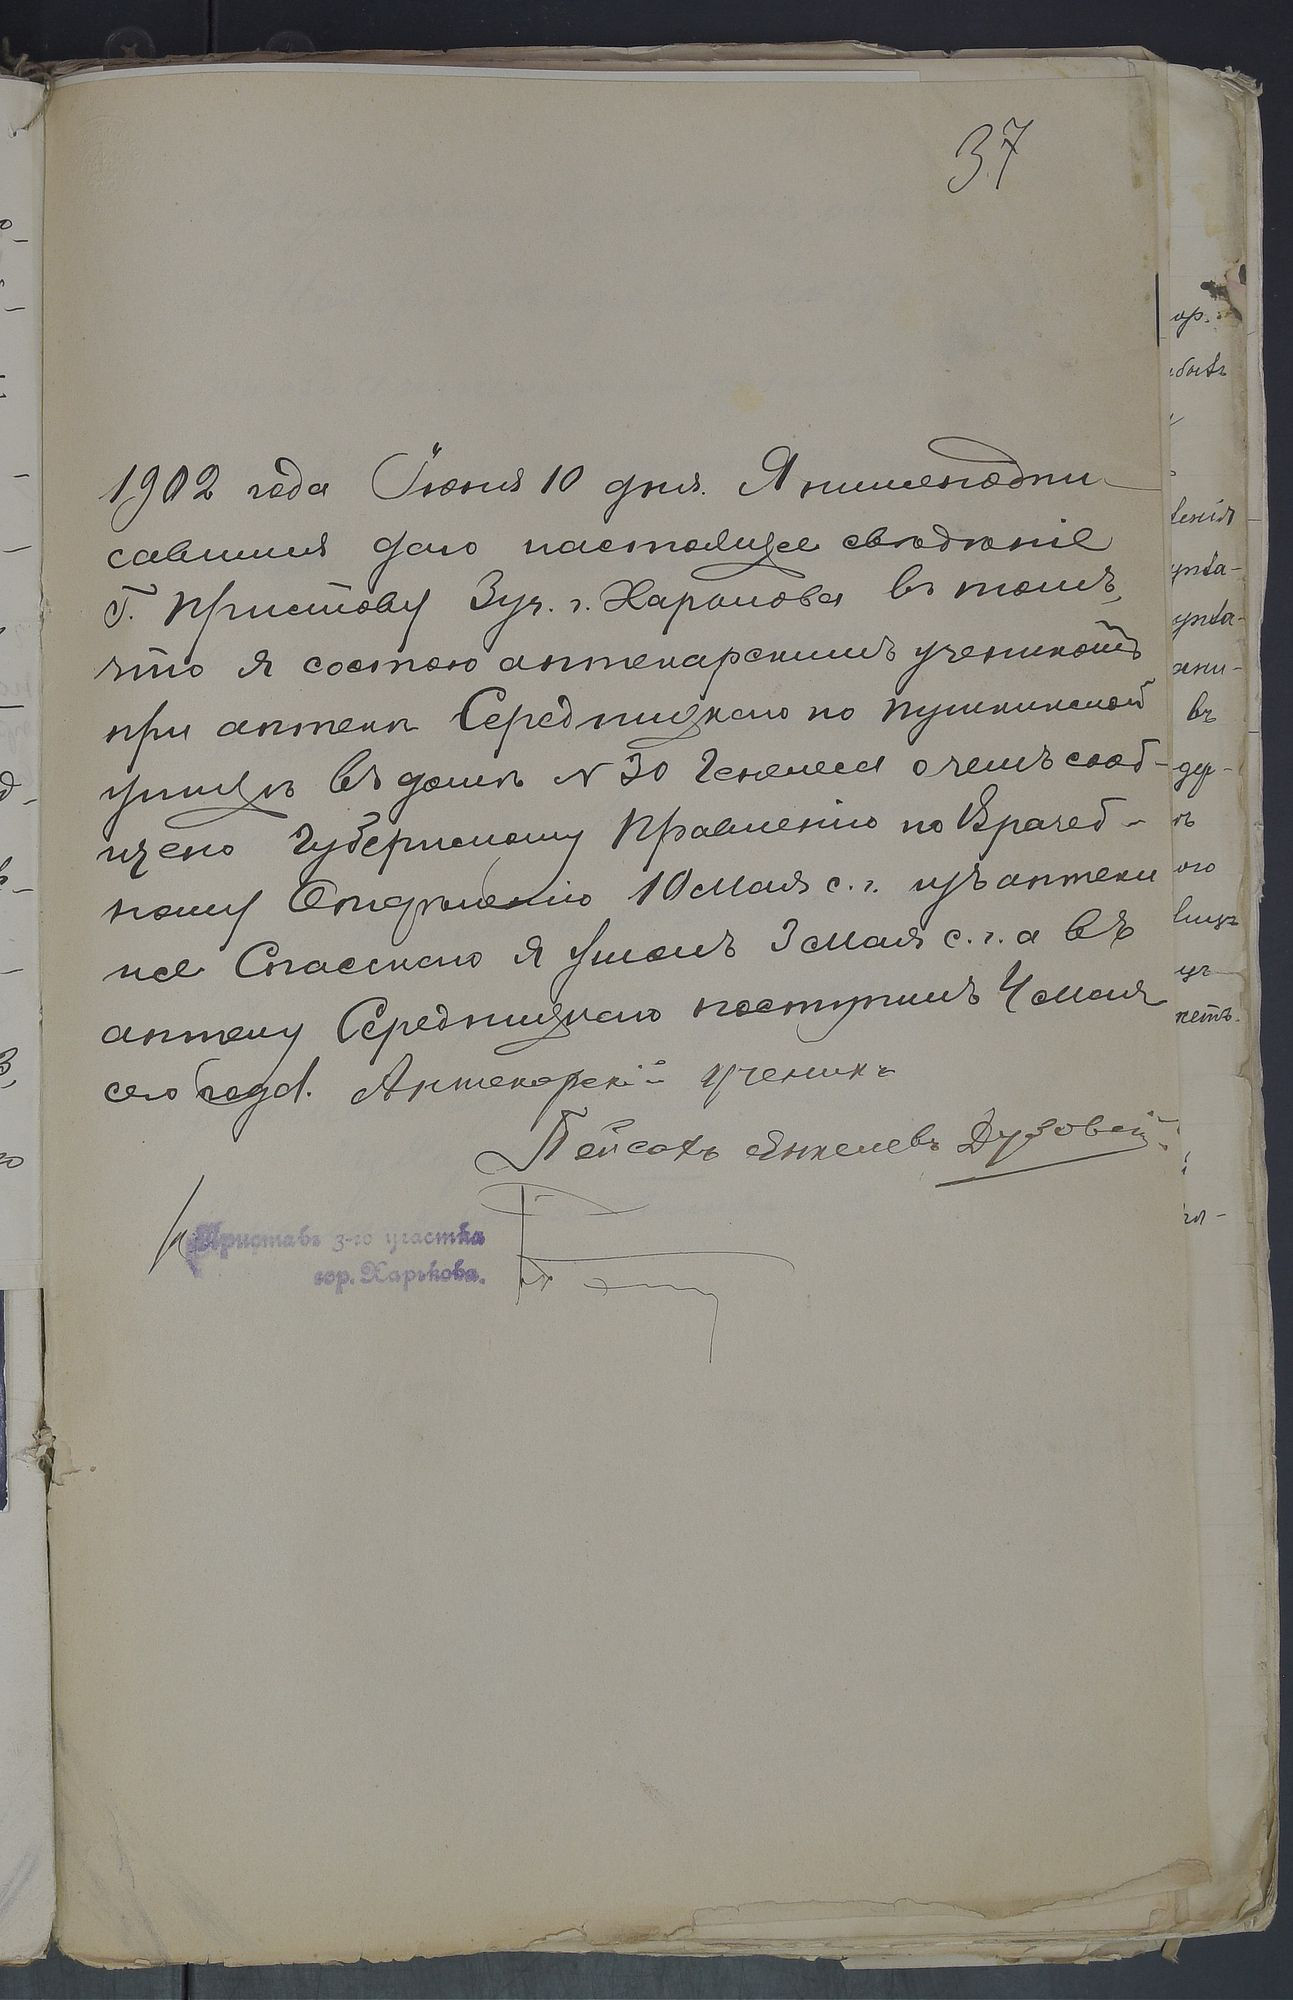 37
1902 года Iюня 10 дня. Я нижеподпи-
савшiйся даю настоящее сведѣнiе
Г. Приставу 3 уч. г. Харькова въ томъ,
что я состою аптекарскимъ ученикомъ
при аптеки Середницкаго по Пушкинской
улицѣ въ домѣ № 30 о чемъ сооб-
щено Губернскому Правленiю по Врачеб-
ному Отдѣленiю 10 Мая с. г. изъ аптеки
же Спасскаго я ушолъ 3 Мая с. г. а въ
аптеку Середницкаго поступилъ 4 Мая
сего года. Аптекарскiй ученикъ
Пейсахъ Янкелевъ Дузовскiй
Приставъ 3-го участка
гор. Харькова.